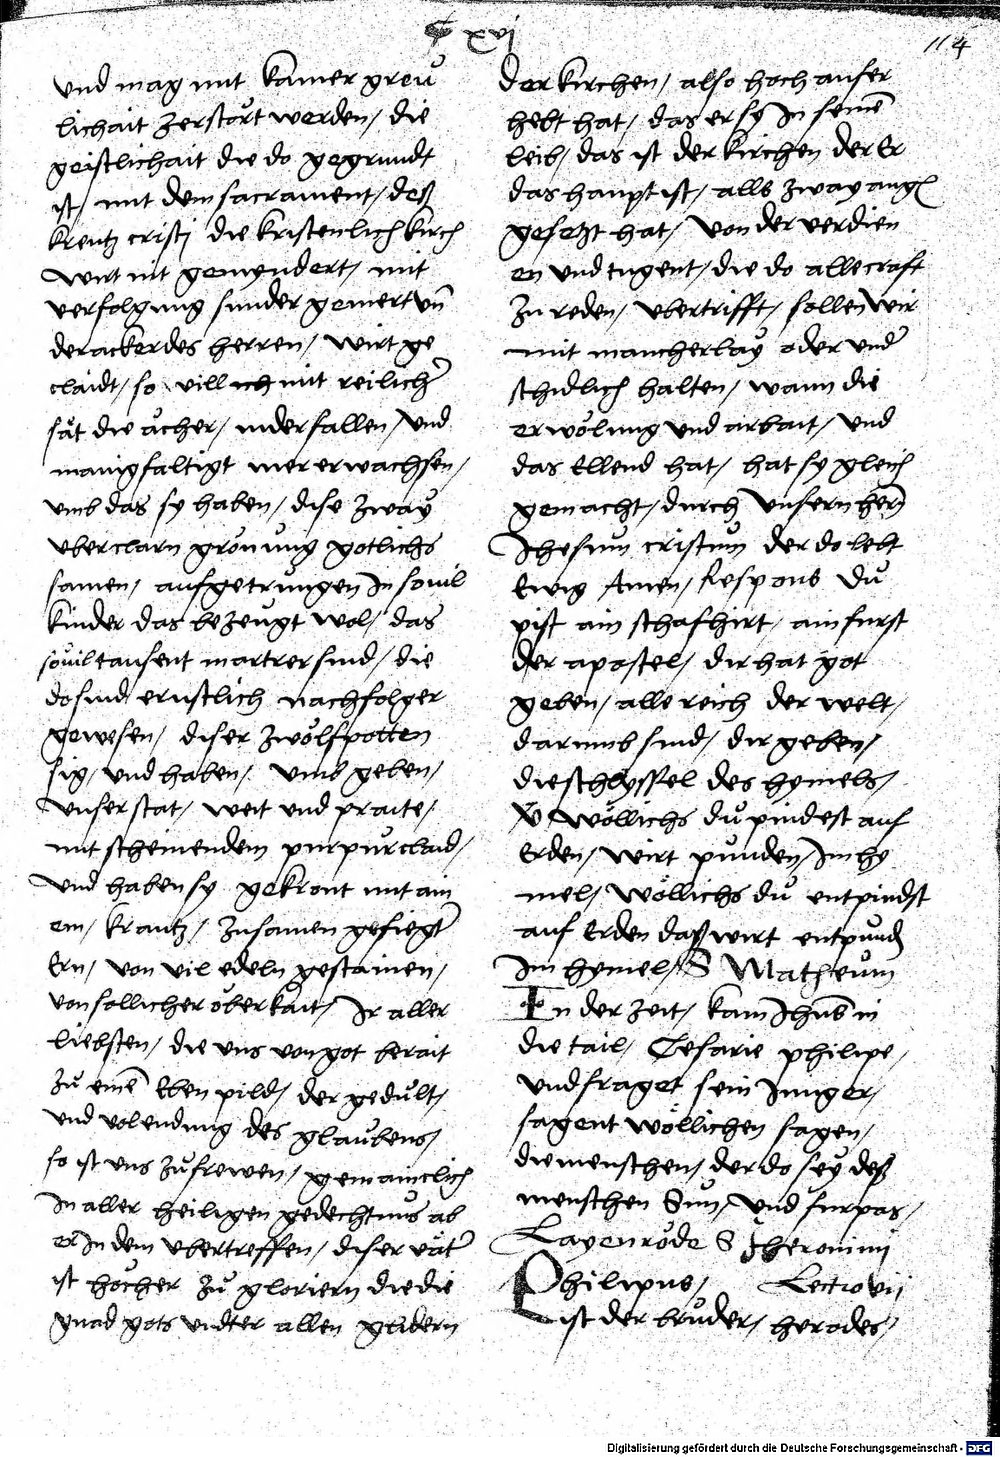 C xvj
114
vnd mag mit kainer greu
lichait zerstört werden / die
geistlichait die do gegrundt
ist / mit dem sacrament / deß
kreutz cristj die kristenlich kirch
wirt nit gemyndert / mit
verfolgung sunder gemert vn̄
der acker des herren / wirt ge
claidt / so vill mit reilicher
sät die ächer / niderfallen / vnd
manigfaltigt mer erwachsen /
vmb das sy haben / dise zway
vberclarn grönung gotlichs
samen / aufgetrungen In souil
kinder das bezeugt wol / das
souil tausent martrer sind / die
do sind ernstlich nachfolger
gewesen / diser zwölfpotten
sig / vnd haben / vmb geben /
vnser stat / weit vnd praite /
mit scheinendem purpurclaid /
vnd haben sy gekront mit ain
em / krantz / zusamen gefiegt
Ern / von vil edeln gestainen /
von sollicher oberkait / Ir aller
liebsten / die vns von got berait
zu einē Eben pild / der gedult /
vnd volendung des glaubens /
so ist vns zufrewen / gemainclich
In aller heiligen gedechtnus ab
er In dem vbertreffen / diser väter
ist höcher zu gloriern die die
gnad gots vndter allen glidern
der kirchen / also hoch aufer
hebt hat / das er sy In seinē
leib / das ist der kirchen der Er
das haupt ist / alls zway augen
gesetzt hat / von der verdien
en vnd tugent / die do alle craft
zu reden / vbertrifft / sollen wir
mit mancherlay oder vnder
schidlich halten / wann die
erwölung vnd arbait / vnd
das Ellend hat / hat sy gleich
gemacht / durch vnsern hern̄
Jhesum cristum der do lebt
Ewig Amen / Respons Du
pist ain schafhirt / ain furst
der apostel / dir hat got
geben / alle reich der welt /
darumb sind / dir geben /
die schlyssel des hymels /
V̄ wöllichs du pindest auf
Erden / wirt punden / Im hy
mel / wöllichs du entpindst
auf Erden daß wirt entpunden
Im hymel / S Matheum
In der zeit / kam Jhūs in
die tail / Cesarie philipe /
vnd fraget sein Junger /
sagent wöllichen sagen /
die menschen / der do sey deß
menschen Sun / vnd furpas /
Layenröde S Jheronimj
Philipus / Lectio vij
ist der bruder / herodes /
Digitalisierung gefördert durch die Deutsche Forschungsgemeinschaft - DFG